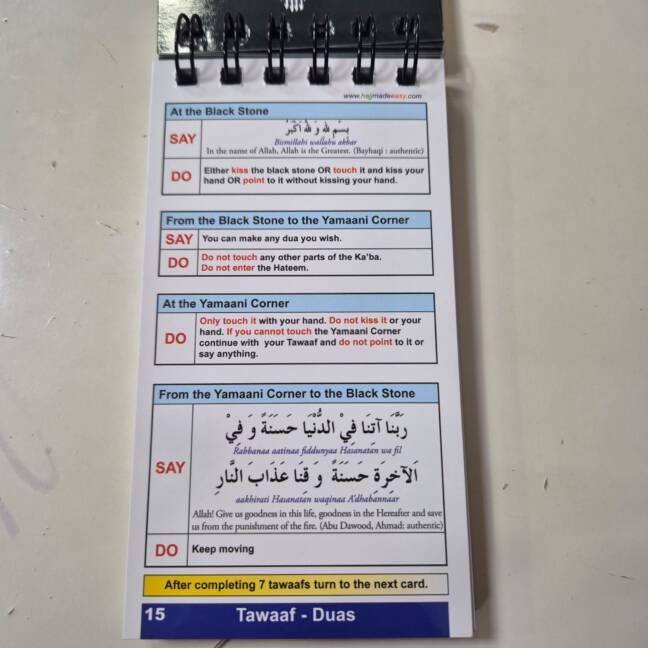 www.hajjmadeeasy.com
At the Black Stone
SAY
بِسْمِ لله وَ لله اَكْبَرُ
Bismillahi wallahu akbar
In the name of Allah, Allah is the Greatest. (Bayhaqi : authentic)
DO
Either kiss the black stone OR touch it and kiss your
hand OR point to it without kissing your hand.
From the Black Stone to the Yamaani Corner
SAY
You can make any dua you wish.
DO
Do not touch any other parts of the Ka'ba.
Do not enter the Hateem.
At the Yamaani Corner
DO
Only touch it with your hand. Do not kiss it or your
hand. If you cannot touch the Yamaani Corner
continue with your Tawaaf and do not point to it or
say anything.
From the Yamaani Corner to the Black Stone
SAY
رَبَّنَا آتِنَا فِيْ الدُّنْيَا حَسَنَةً وَ فِيْ
Rabbanaa aatinaa fiddunyaa Hasanatan wa fil
اَلآخِرَةِ حَسَنَةً وَ قِنَا عَذَابَ النَّارِ
aakhirati Hasanatan waqinaa A'dhabannaar
Allah! Give us goodness in this life, goodness in the Hereafter and save
us from the punishment of the fire. (Abu Dawood, Ahmad: authentic)
DO
Keep moving
After completing 7 tawaafs turn to the next card.
15
Tawaaf - Duas